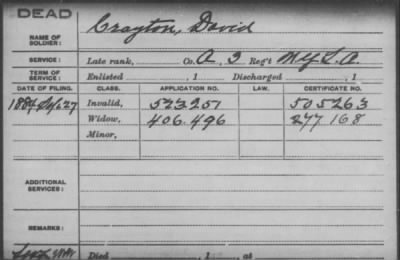 DEAD
NAME OF SOLDIER: Crayton, David
SERVICE: Late rank, Co. A, 3 Reg't N.Y. L. A.
TERM OF SERVICE: Enlisted , 1 Discharged , 1
DATE OF FILING. CLASS. APPLICATION NO. LAW. CERTIFICATE NO.
1884 27 Invalid, 523251 505263
Widow, 406.496 277168
Minor,
ADDITIONAL SERVICES:
REMARKS:
Died , 1 , at